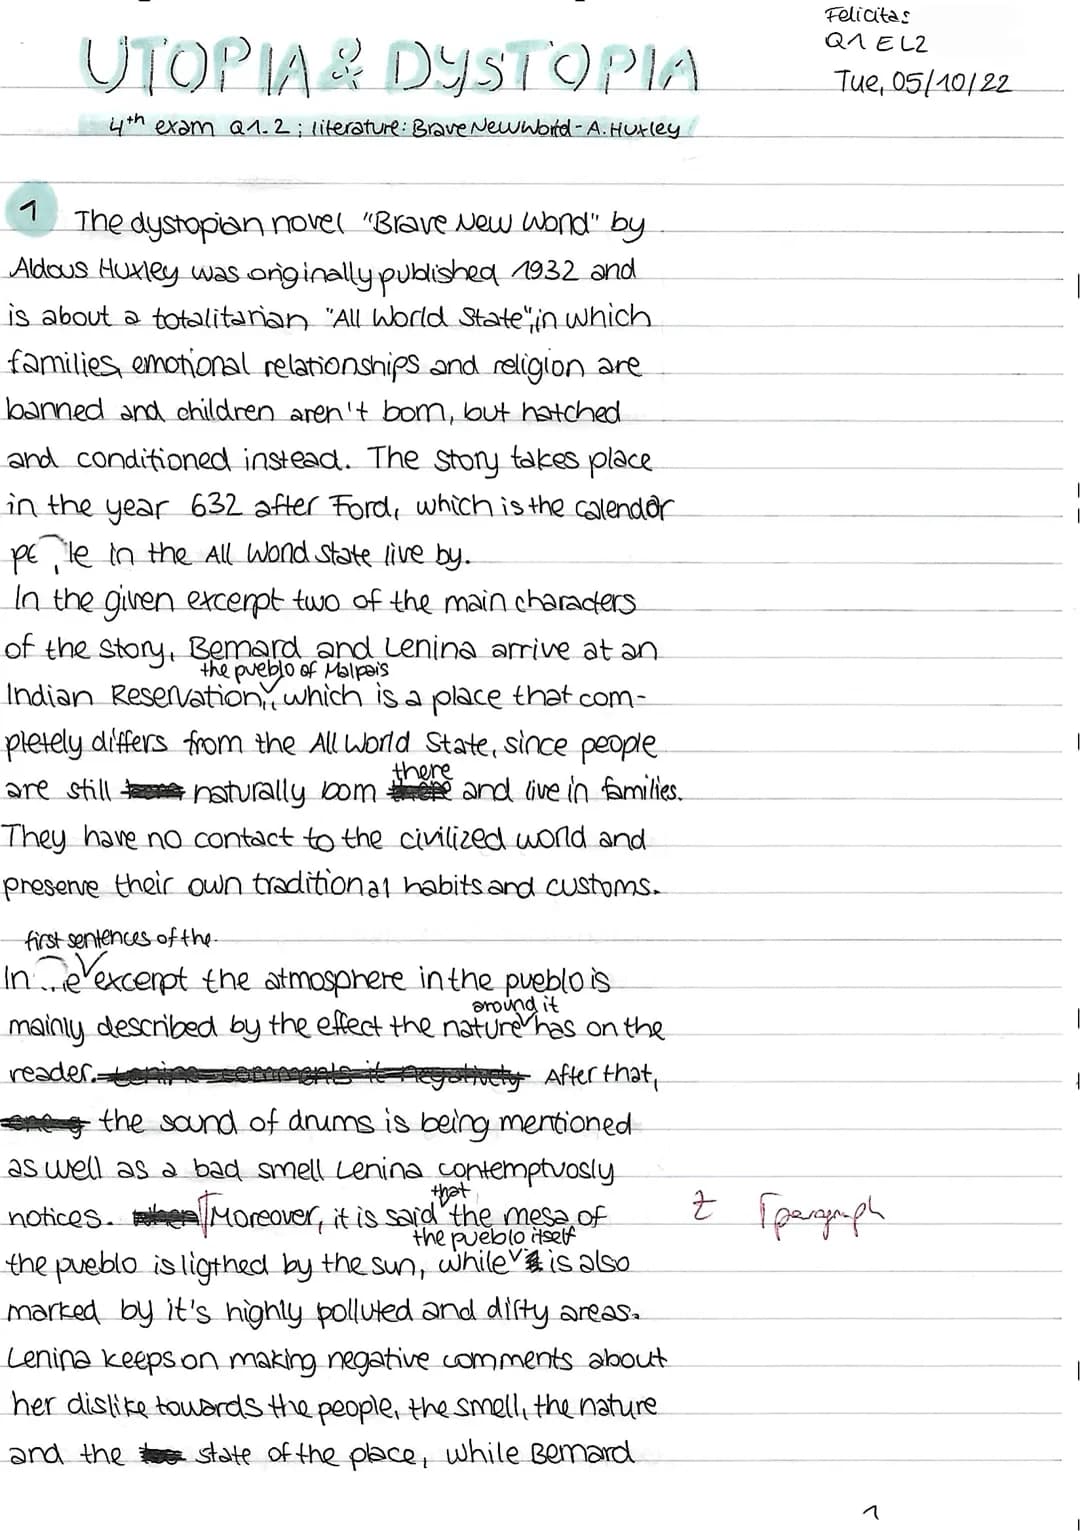 Felicitas
Q1 EL2
Tue, 05/10/22
UTOPIA & DYSTOPIA
4th exam Q1.2; literature: Brave New World - A. Huxley
1 The dystopian novel "Brave New World" by
Aldous Huxley was originally published 1932 and
is about a totalitarian "All World State", in which
families, emotional relationships and religion are
banned and children aren't born, but hatched
and conditioned instead. The story takes place
in the year 632 after Ford, which is the calendar
pe le in the All World State live by.
In the given excerpt two of the main characters
of the story, Bernard and Lenina arrive at an
the pueblo of Malpais
Indian Reservation, which is a place that com-
pletely differs from the All World State, since people
there
are still naturally born there and live in families.
They have no contact to the civilized world and
preserve their own traditional habits and customs.
first sentences of the
In e excerpt the atmosphere in the pueblo is
around it
mainly described by the effect the nature has on the
reader. Lenina comments it negatively After that,
the sound of drums is being mentioned
as well as a bad smell Lenina contemptuosly
that
notices. when Moreover, it is said the mesa of
Z ⌈paragraph
the pueblo itself
the pueblo is ligthed by the sun, while is also
marked by it's highly polluted and dirty areas.
Lenina keeps on making negative comments about
her dislike towards the people, the smell, the nature
and the state of the place, while Bernard
1